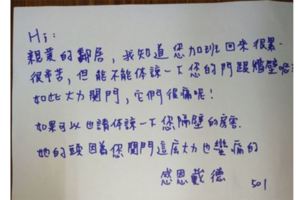 Hi:
親愛的鄰居,我知道您加班回來很累.
很辛苦,但能不能体諒一下您的門跟牆壁呢
如此大力關門,它們很痛呢!
如果可以也請体諒一下您隔壁的房客.
她的頭因着您關門這麼大力也蠻痛的
感恩戴德
501